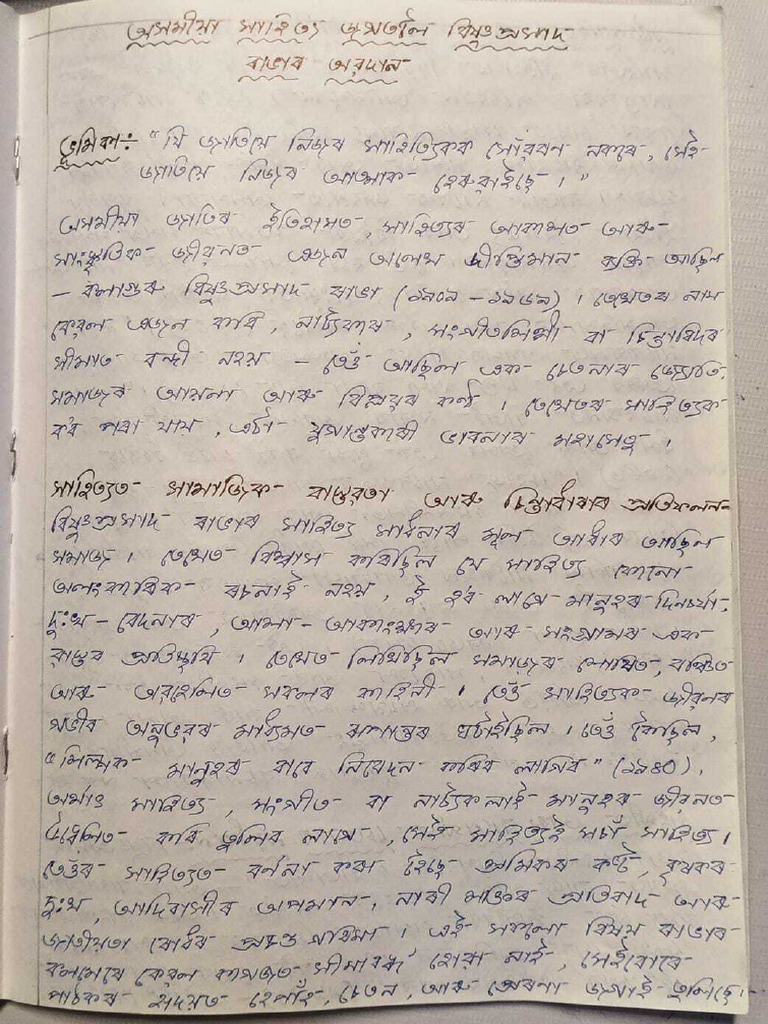 অসমীয়া সাহিত্য জগতলৈ বিষ্ণুপ্ৰসাদ
ৰাভাৰ অৱদান
ভূমিকা:- "যি জাতিয়ে নিজৰ সাহিত্যিকক সোঁৱৰণ নকৰে, সেই
জাতিয়ে নিজৰ আত্মাক হেৰুৱাইছে।"
অসমীয়া জাতিৰ ইতিহাসত, সাহিত্যৰ আকাশত আৰু
সাংস্কৃতিক জীৱনত এজন অলেখ দীপ্তিমান ব্যক্তি আছিল
– কলাগুৰু বিষ্ণুপ্ৰসাদ ৰাভা (১৯০৯ – ১৯৬৯)। তেখেতৰ নাম
কেৱল এজন কবি, নাট্যকাৰ, সংগীতশিল্পী বা চিন্তাবিদৰ
সীমাত বন্দী নহয় – তেওঁ আছিল এক চেতনাৰ জ্যোতি,
সমাজৰ আয়না আৰু বিপ্লৱৰ কণ্ঠ। তেখেতৰ সাহিত্যক
ক'ব পৰা যায়, এটা যুগান্তকাৰী ভাবনাৰ মহাসেতু।
সাহিত্যত সামাজিক বাস্তৱতা আৰু চিন্তাধাৰাৰ প্ৰতিফলন–
বিষ্ণুপ্ৰসাদ ৰাভাৰ সাহিত্য সাধনাৰ মূল আধাৰ আছিল
সমাজ। তেখেত বিশ্বাস কৰিছিল যে সাহিত্য কোনো
অলংকাৰিক ৰচনাই নহয়, ই হ'ব লাগে মানুহৰ দিনচৰ্যা,
দুঃখ – বেদনাৰ, আশা – আকাংক্ষাৰ আৰু সংগ্ৰামৰ এক
বাস্তৱ প্ৰতিচ্ছবি। তেখেত লিখিছিল সমাজৰ শোষিত, বঞ্চিত
আৰু অৱহেলিত সকলৰ কাহিনী। তেওঁ সাহিত্যক জীৱনৰ
গভীৰ অনুভৱৰ মাধ্যমত ৰূপান্তৰ ঘটাইছিল। তেওঁ কৈছিল,
"শিল্পক মানুহৰ বাবে নিবেদন কৰিব লাগিব" (১৯৪০),
অৰ্থাৎ সাহিত্য, সংগীত বা নাট্যকলাই মানুহৰ জীৱনত
উদ্বেলিত কৰি তুলিব লাগে, সেই সাহিত্যই সচাঁ সাহিত্য।
তেওঁৰ সাহিত্যত বৰ্ণনা কৰা হৈছে শ্ৰমিকৰ কষ্ট, কৃষকৰ
দুঃখ, আদিবাসীৰ অপমান, নাৰী মুক্তিৰ প্ৰতিবাদ আৰু
জাতীয়তা বোধৰ প্ৰচণ্ড গৰিমা। এই সকলো বিষয় ৰাভাৰ
কলমেৰে কেৱল কাগজত সীমাবদ্ধ হোৱা নাই, সেইবোৰে
পাঠকৰ হৃদয়ত হেপাঁহ, চেতনা, আৰু প্ৰেৰণা জগাই তুলিছে।